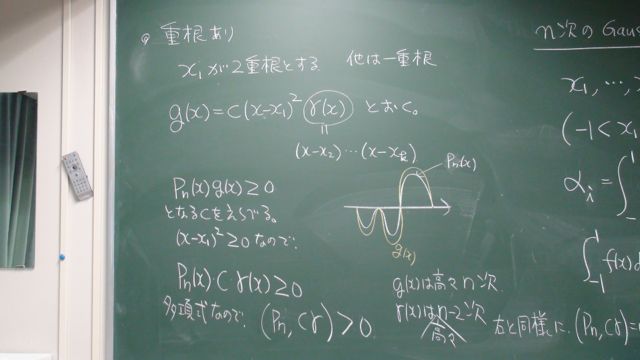 重根あり
x₁が2重根とする 他は一重根
g(x)=C(x-x₁)² r(x) とおく。
॥
(x-x₂)…(x-x_k)
Pn(x)
Pn(x)g(x)≧0
となるCをえらべる。
(x-x₁)²≧0なので、
g(x)
Pn(x)C r(x)≧0
多項式なので、(Pn, Cr)>0
g(x)は高々n次
r(x)はn-2次
高々
右と同様に、(Pn, Cr)=
n次のGaus
x₁, …,
(-1<x₁
αᵢ=∫
∫₋₁¹ f(x)d